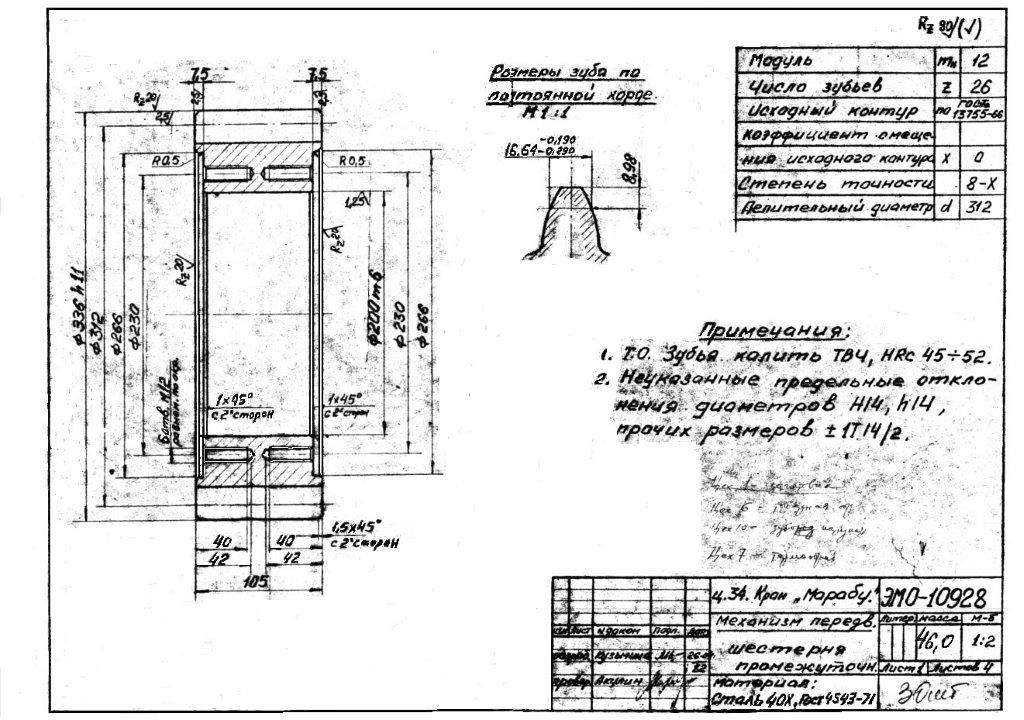 Rz 80/(√)
Модуль mн 12
Число зубьев z 26
Исходный контур по ГОСТ 13755-66
Коэффициент смеще-
ния исходного контура x 0
Степень точности 8-X
Делительный диаметр d 312
Размеры зуба по
постоянной хорде.
М 1:1
16,64 -0,190 -0,290
8,98
7,5
7,5
2,5
2,5
Rz 20
2,5
R 0,5
R 0,5
1,25
Rz 20
Rz 20
ф336 h11
ф312
ф266
ф230
ф200 m6
ф230
ф266
6 отв. М12
1×45°
с 2х сторон
1×45°
с 2х сторон
1,5×45°
с 2х сторон
40
40
42
42
105
Примечания:
1. Т.О. Зубья калить ТВЧ, HRc 45÷52.
2. Неуказанные предельные откло-
нения диаметров H14, h14,
прочих размеров ± IT14/2.
Цех 7 –
ц.34. Кран „Марабу."
ЭМО-10928
Механизм передв.
Литер масса М-Б
шестерня
промежуточн.
46,0
1:2
Лист 1 Листов 4
Лист № докум Подп. Дата
Разраб Кузьмина
Провер Акулин
материал:
Сталь 40Х, Гост 4543-71
30шт